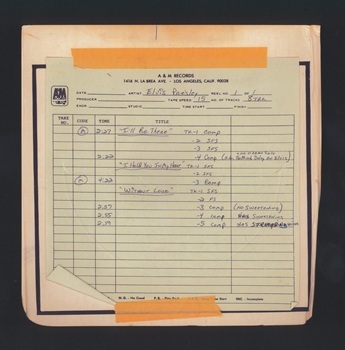 A & M RECORDS
1416 N. LA BREA AVE. · LOS ANGELES, CALIF. 90028
DATE ARTIST Elvis Presley REEL NO. 1 OF 1
PRODUCER TAPE SPEED 15 NO. OF TRACKS 8 TRK
ENGR. STUDIO TIME START FINISH
TAKE NO. CODE TIME TITLE
2:27 "I'll Be There" TK-1 Comp
-2 SFS
-3 SFS
2:22 -4 Comp
"I Hold You In My Heart" TK-1 SFS
-2 FS
4:22 -3 Comp
"Without Love" TK-1 SFS
-2 FS
2:57 -3 Comp (No Sweetening)
2:55 -4 Comp Has Sweetening
2:59 -5 Comp Has
N.G. - No Good Start INC - Incomplete